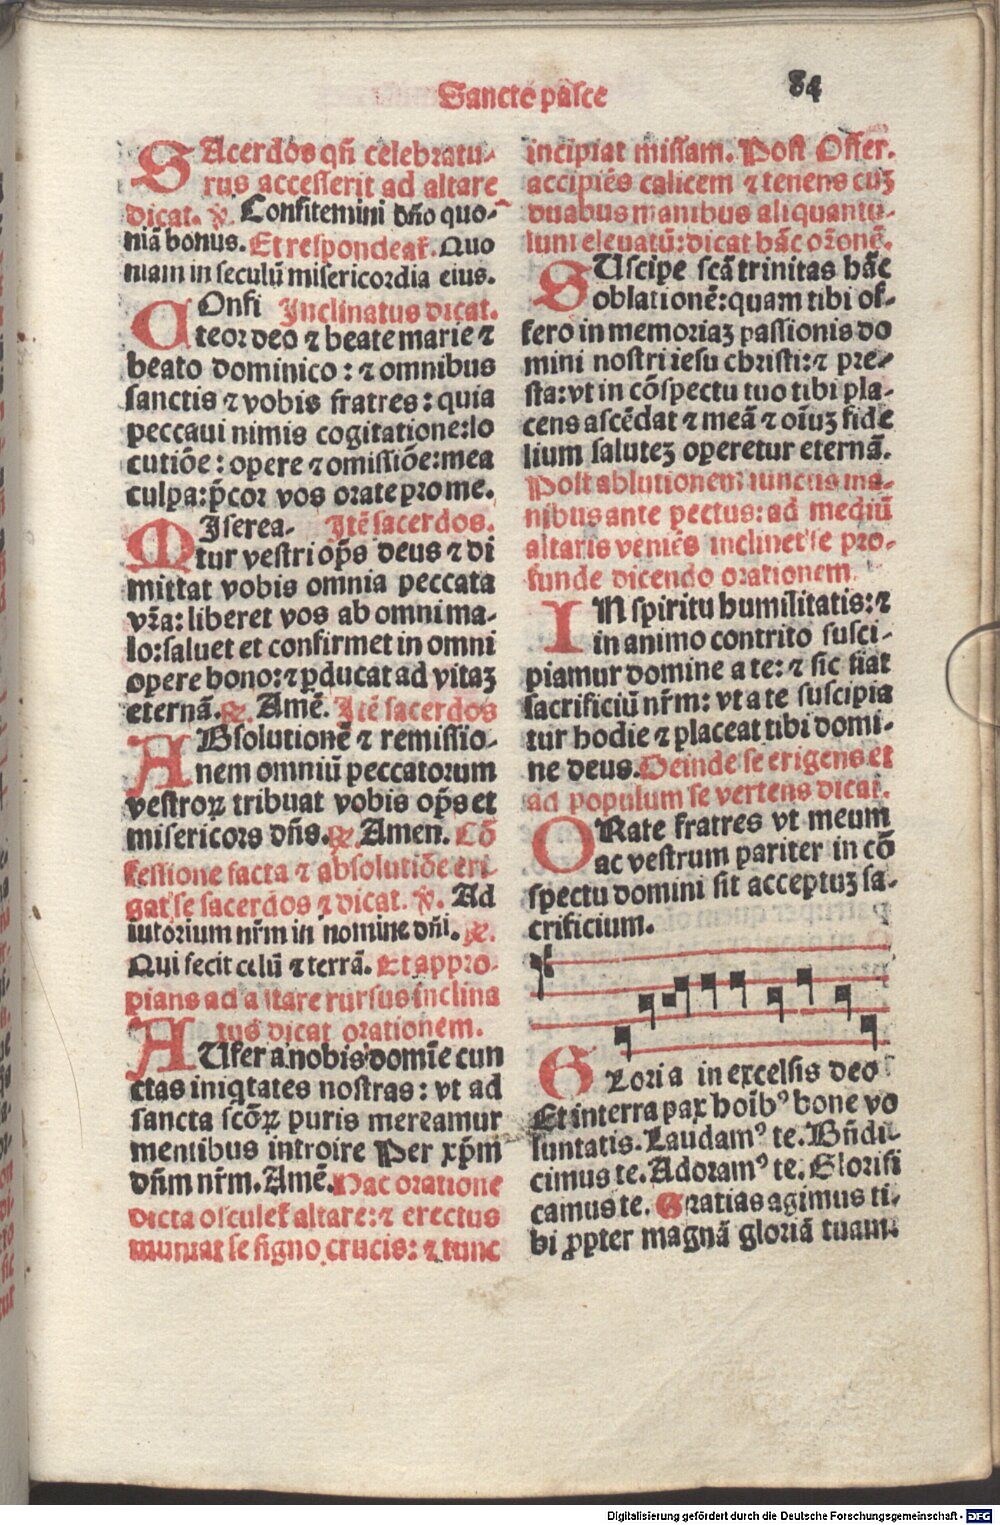 Sancto pasce
84
SAcerdos qñ celebratu-
rus accesserit ad altare
dicat. ℣. Confitemini dño quo-
niã bonus. Et respondeat̃. Quo
niam in seculũ misericordia eius.
COnfi Inclinatus dicat.
teor deo ⁊ beate marie ⁊
beato dominico : ⁊ omnibus
sanctis ⁊ vobis fratres : quia
peccaui nimis cogitatione:lo
cutiõe : opere ⁊ omissiõe:mea
culpa:p̃cor vos orate pro me.
MIserea- Itẽ sacerdos.
tur vestri op̃s deus ⁊ di
mittat vobis omnia peccata
vr̃a: liberet vos ab omni ma-
lo:saluet et confirmet in omni
opere bono:⁊ ꝑducat ad vitaꝫ
eternã. ℟. Amẽ. Itẽ sacerdos
ABsolutionẽ ⁊ remissio-
nem omniũ peccatorum
vestroꝝ tribuat vobis op̃s et
misericors dñs. ℟. Amen. Cõ
fessione facta ⁊ absolutiõe eri-
gat se sacerdos ⁊ dicat. ℣. Ad
iutorium nr̃m in nomine dñi. ℟.
Qui fecit celũ ⁊ terrã. Et appro-
pians ad altare rursus inclina
tus dicat orationem.
AUfer a nobis domĩe cun
ctas iniq̃tates nostras : vt ad
sancta scõꝝ puris mereamur
mentibus introire Per xp̃m
dñm nr̃m. Amẽ. Hac oratione
dicta osculet̃ altare:⁊ erectus
muniat se signo crucis: ⁊ tunc
incipiat missam. Post Offer.
accipiẽs calicem ⁊ tenens cuꝫ
duabus manibus aliquantu-
lum eleuatũ:dicat hãc oꝛonẽ.
SUscipe scã trinitas hãc
oblationẽ:quam tibi of-
fero in memoriaꝫ passionis do
mini nostri iesu christi:⁊ pre-
sta:vt in cõspectu tuo tibi pla-
cens ascẽdat ⁊ meã ⁊ oĩuꝫ fide
lium saluteꝫ operetur eternã.
Post ablutionem iunctis ma-
nibus ante pectus: ad mediũ
altaris veniẽs inclinet se pro-
funde dicendo orationem
IN spiritu humilitatis:⁊
in animo contrito susci-
piamur domine a te: ⁊ sic fiat
sacrificiũ nr̃m: vt a te suscipia
tur hodie ⁊ placeat tibi domi-
ne deus. Deinde se erigens et
ad populum se vertens dicat.
ORate fratres vt meum
ac vestrum pariter in cõ
spectu domini sit acceptuꝫ sa-
crificium.
Gloria in excelsis deo
Et in terra pax hoĩbꝰ bone vo
luntatis. Laudamꝰ te. Bñdi-
cimus te. Adoramꝰ te. Glorifi
camus te. Gratias agimus ti-
bi ꝓpter magnã gloriã tuam.
Digitalisierung gefördert durch die Deutsche Forschungsgemeinschaft - DFG